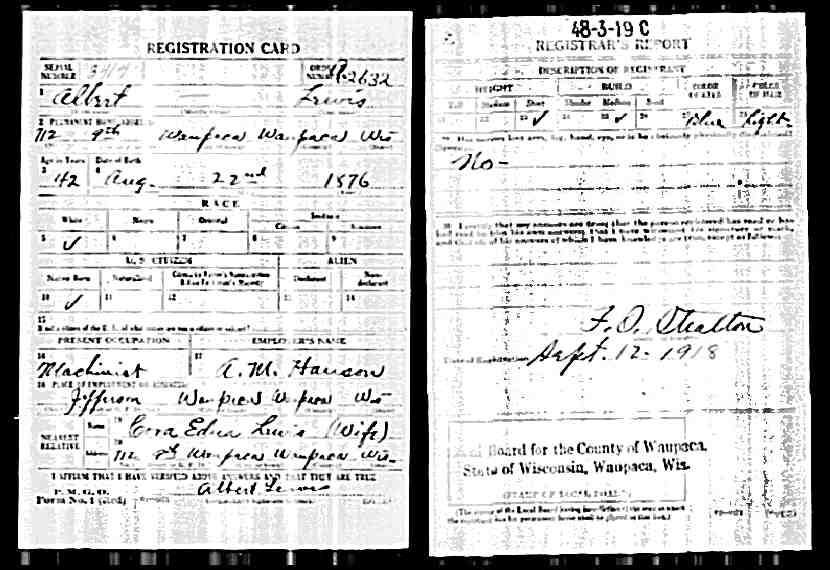 REGISTRATION CARD
SERIAL NUMBER
ORDER NUMBER A2632
1 Albert Lewis
2 PERMANENT HOME ADDRESS
712 9th Waupaca Waupaca Wis
Age in Years Date of Birth
3 42 4 Aug. 22nd 1876
RACE
White Negro Oriental Indian
Citizen Noncitizen
5 ✓ 6 7 8 9
U. S. CITIZEN ALIEN
Native Born Naturalized Citizen by Father's Naturalization Before Registrant's Majority Declarant Non-declarant
10 ✓ 11 12 13 14
15
If not a citizen of the U. S., of what nation are you a citizen or subject?
PRESENT OCCUPATION EMPLOYER'S NAME
16 17
Machinist A. M. Hanson
18 PLACE OF EMPLOYMENT OR BUSINESS
Jefferson Waupaca Waupaca Wis
NEAREST RELATIVE
Name 19 Cora Edna Lewis (Wife)
Address 20 712 9th Waupaca Waupaca Wis.
I AFFIRM THAT I HAVE VERIFIED ABOVE ANSWERS AND THAT THEY ARE TRUE
P. M. G. O.
Form No. 1 (Red) Albert Lewis
48-3-19 C
REGISTRAR'S REPORT
DESCRIPTION OF REGISTRANT
HEIGHT BUILD COLOR OF EYES COLOR OF HAIR
Tall Medium Short Slender Medium Stout
21 22 23 ✓ 24 25 ✓ 26 27 Blue 28 Light
29 Has person lost arm, leg, hand, eye, or is he obviously physically disqualified?
No-
30 I certify that my answers are true; that the person registered has read or has had read to him his own answers; that I have witnessed his signature or mark, and that all of his answers of which I have knowledge are true, except as follows:
F. O. Stratton
Date of Registration Sept. 12-1918
Board for the County of Waupaca,
State of Wisconsin, Waupaca, Wis.
(STAMP OF LOCAL BOARD)
(The stamp of the Local Board having jurisdiction of the area in which the registrant has his permanent home shall be placed in this box.)